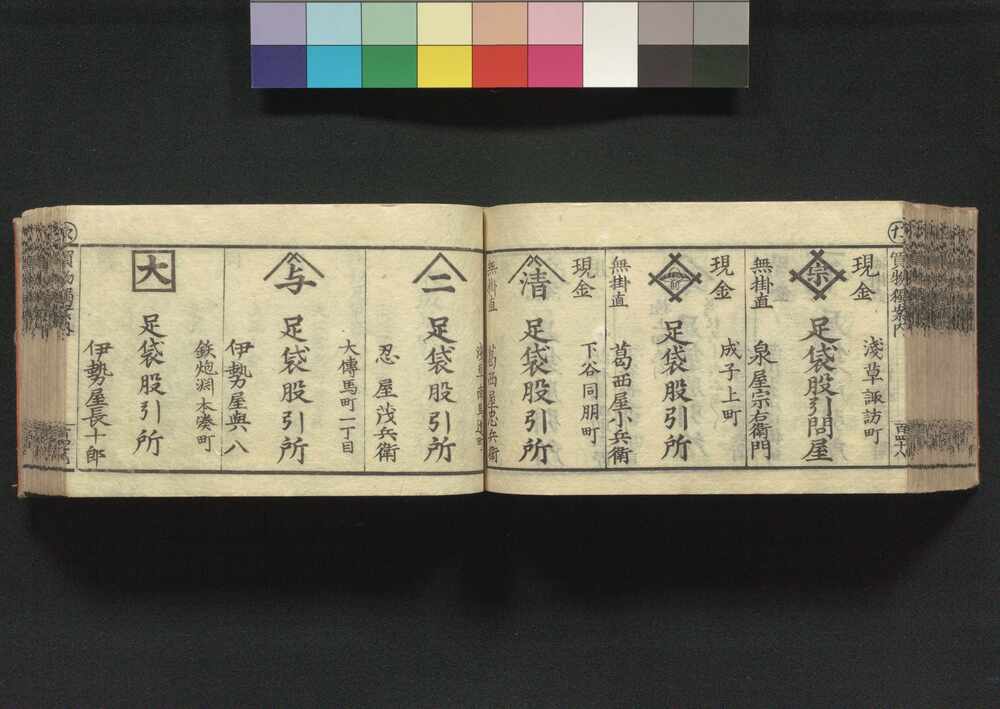 買物獨案内
現金
淺草諏訪町
宗
足袋股引問屋
無掛直
泉屋宗右衛門
現金
成子上町
足袋股引所
無掛直
葛西屋小兵衛
現金
下谷同朋町
清
足袋股引所
無掛直
葛西屋忠兵衛
二
足袋股引所
忍屋茂兵衛
大傳馬町二丁目
与
足袋股引所
伊勢屋與八
鉄炮洲本湊町
大
足袋股引所
伊勢屋長十郎
買物獨案内